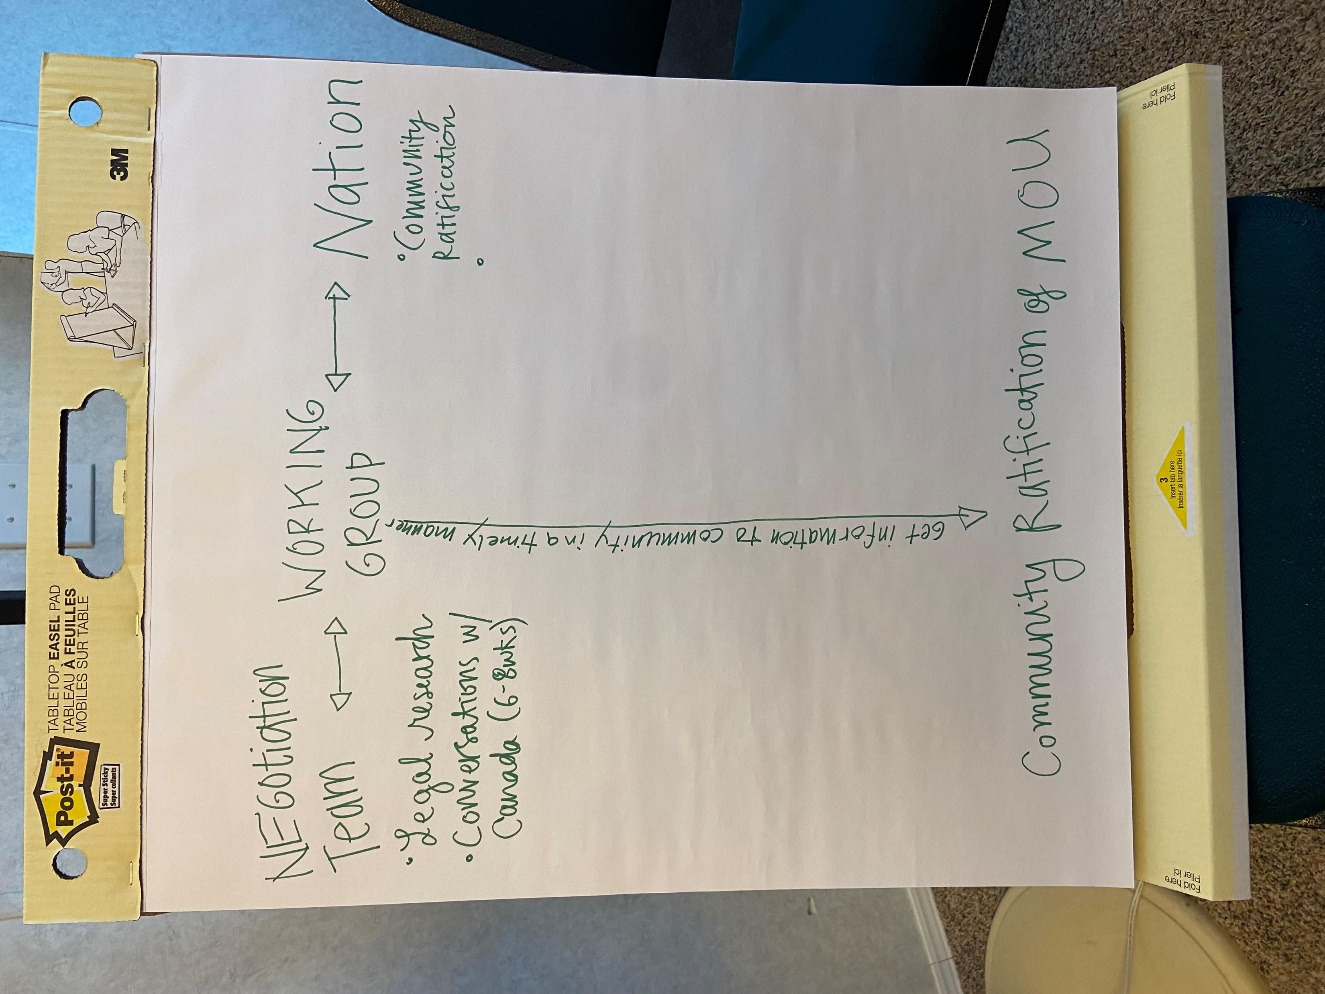 Post-it
Super Sticky
Super collants
TABLETOP EASEL PAD
TABLEAU À FEUILLES
MOBILES SUR TABLE
3M
NEGOTIATION
Team
WORKING
GROUP
Nation
• Legal research
• Conversations w/
Canada (6-8wks)
• Community
Ratification
•
Get information to community in a timely manner
Community Ratification of MOU
Fold here
Plier ici
3
Insert tab here
Insérer la languette ici
Fold here
Plier ici